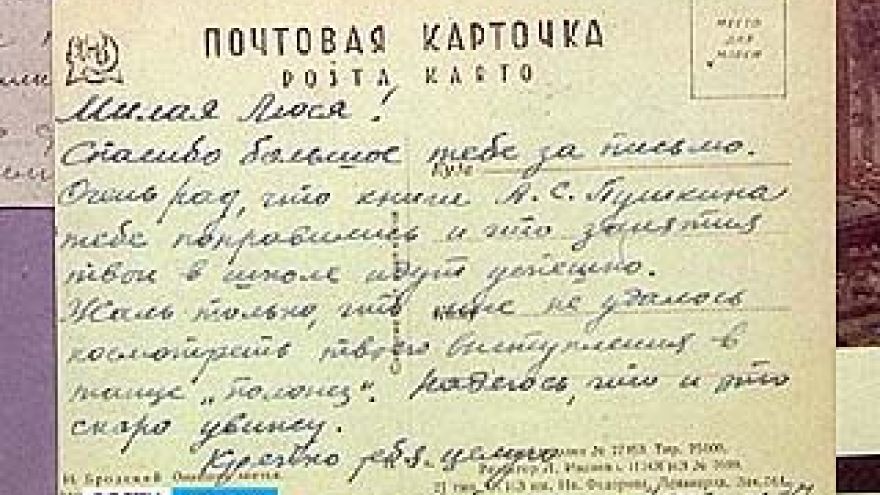 ПОЧТОВАЯ КАРТОЧКА
POŜTA KARTO
МЕСТО
ДЛЯ
МАРКИ
Милая Люся!
Спасибо большое тебе за письмо.
Куда
Очень рад, что книги А. С. Пушкина
тебе понравились и что занятия
твои в школе идут успешно.
Жаль только, что мне не удалось
посмотреть твоего выступления в
танце „полонез“. Надеюсь, что и это
скоро увижу.
Крепко тебя целую
И. Бродский
Тир. 25000.
Редактор
21 тип. им. Ив. Федорова, Ленинград, Зак.